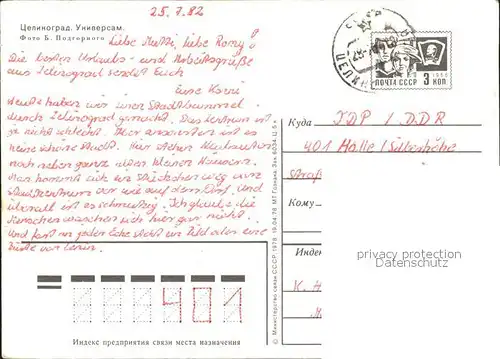 25.7.82
Целиноград. Универсам.
Фото Б. Подгорного
Liebe Mutti, liebe Romy!
Die besten Urlaubs- und Arbeitsgrüße
aus Zelinograd sendet Euch
Eure Karri
Heute haben wir einen Stadtbummel
durch Zelinograd gemacht. Das Zentrum ist
ja nicht schlecht. Aber ansonsten ist es
keine schöne Stadt. Hier stehen Neubauten
noch neben ganz alten kleinen Häusern.
Man kommt sich ein Stückchen weg vom
Stadtzentrum vor wie auf dem Dorf. Und
überall ist es schmutzig. Ich glaube die
Menschen waschen sich hier gar nicht.
Und fast an jeder Ecke steht ein Bild oder eine
Büste von Lenin.
401
Индекс предприятия связи места назначения
© Министерство связи СССР. 1978. 19.04.78. МТ Гознака. Зак. 8034. Ц. 5 к.
СССР
ПОЧТА СССР 3 КОП
1966
Куда ГДР / DDR
401 Halle / Silberhöhe
Straß
Кому
Индек
К. Н
privacy protection
Datenschutz